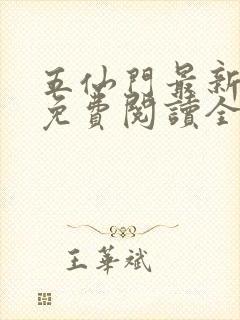 五仙門最新
免費閱讀全
王華斌